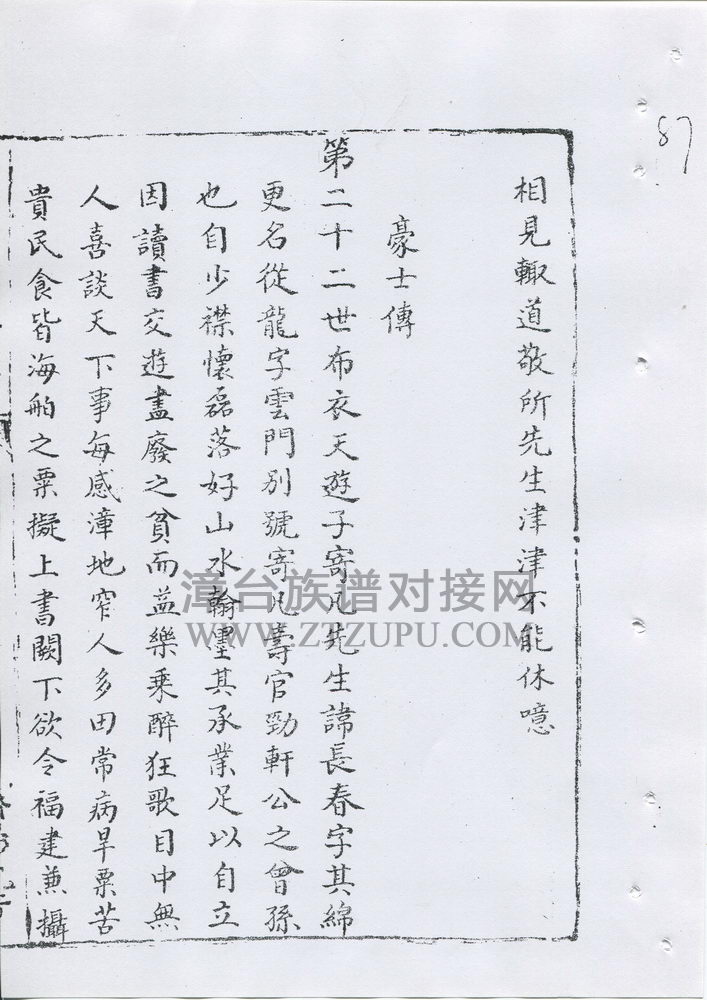 87
相見輙道敬所先生津津不能休噫
豪士傳
第二十二世布衣天遊子寄凡先生諱長春字其綿
更名從龍字雲門別號寄凡壽官勁軒公之曾孫
也自少襟懷磊落好山水翰墨其承業足以自立
因讀書交遊盡廢之貧而益樂乘醉狂歌目中無
人喜談天下事每感漳地窄人多田常病旱粟苦
貴民食皆海舶之粟擬上書闕下欲令福建兼攝
漳台族谱对接网
WWW.ZTZUPU.COM